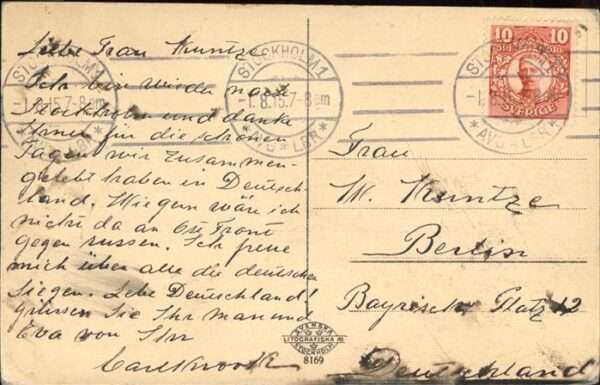 Liebe Frau Kuntze
Ich bin wieder nach
Stockholm und danke
Ihnen für die schönen
Tagen wir zusammen-
gelebt haben in Deutsch-
land. Wiegern wäre ich
nicht da an Ost Front
gegen russen. Ich freue
mich über alle die deutschen
Siegen. Lebe Deutschland!
grüssen Sie Ihr Man und
Eva von Ihr
STOCKHOLM 1
-1.8.15.7-8 em
* AVG-LBR *
10 10
SVERIGE
Frau
M. Kuntze
Berlin
Bayrischer Platz 12
Deutschland
SVENSKA
LITOGRAFISKA AB.
STOCKHOLM
8169